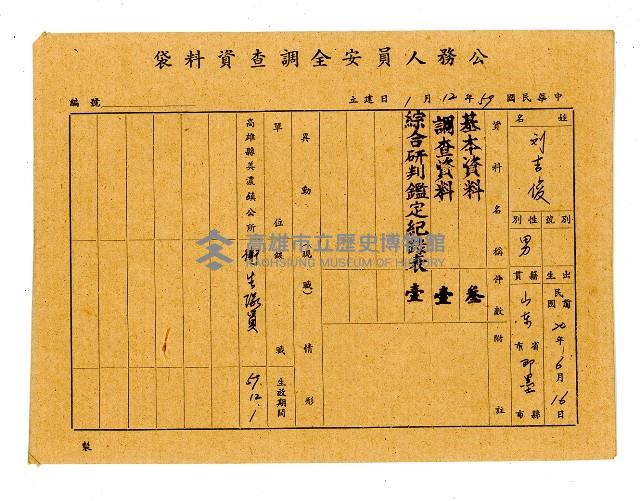 公務人員安全調查資料袋
編號
中華民國59年12月1日建立
姓名
刘吉俊
別號
性別
男
出生
民國前
20年6月16日
籍貫
山东省市
即墨縣市
資料名稱
件數
附註
基本資料 叁
調查資料 壹
綜合研判鑑定紀錄表 壹
異動(現職)情形
單位
級職
生效期間
高雄縣美濃鎮公所
衛生隊員
59.12.1
高雄市立歷史博物館
KAOHSIUNG MUSEUM OF HISTORY
製